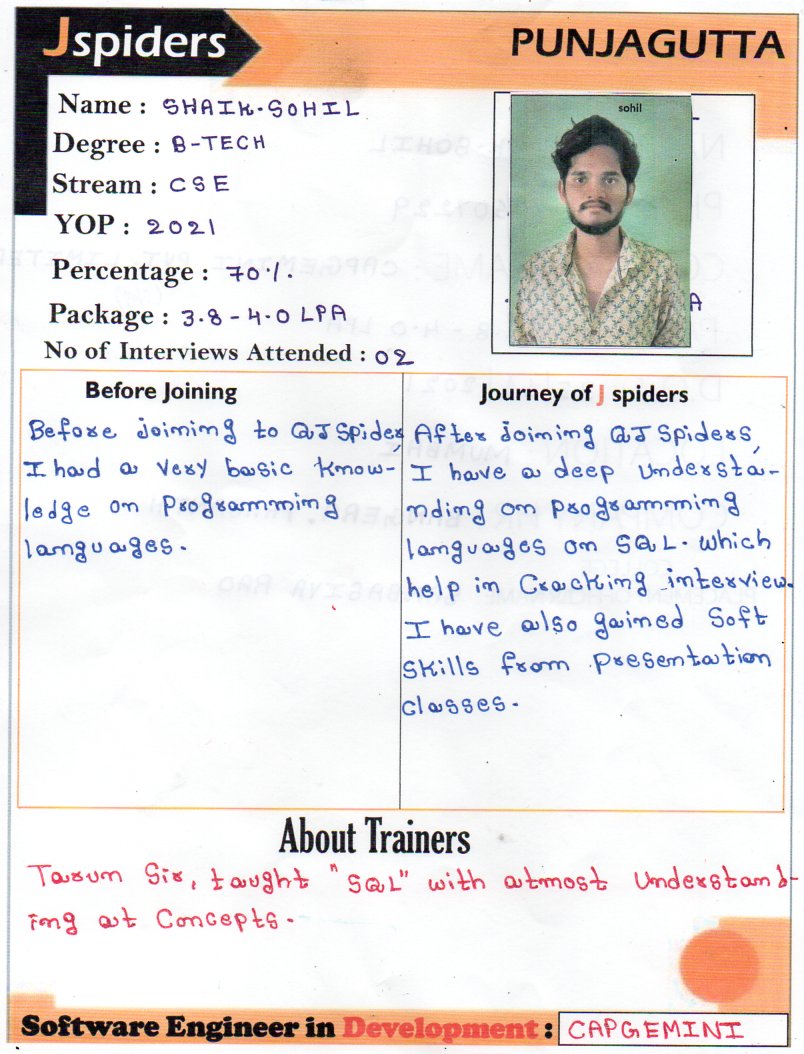 Jspiders
PUNJAGUTTA
Name : SHAIK.SOHIL
Degree : B-TECH
Stream : CSE
YOP : 2021
Percentage : 70%.
Package : 3.8 - 4.0 LPA
No of Interviews Attended : 02
sohil
Before Joining
Before joining to QJSpider
I had a very basic know-
ledge on programming
languages.
Journey of J spiders
After joining QJSpiders,
I have a deep understa-
nding on programming
languages on SQL. which
help in Cracking interview.
I have also gained Soft
skills from presentation
classes.
About Trainers
Tarun Sir, taught "SQL" with atmost understand-
ing at Concepts.
Software Engineer in Development : CAPGEMINI